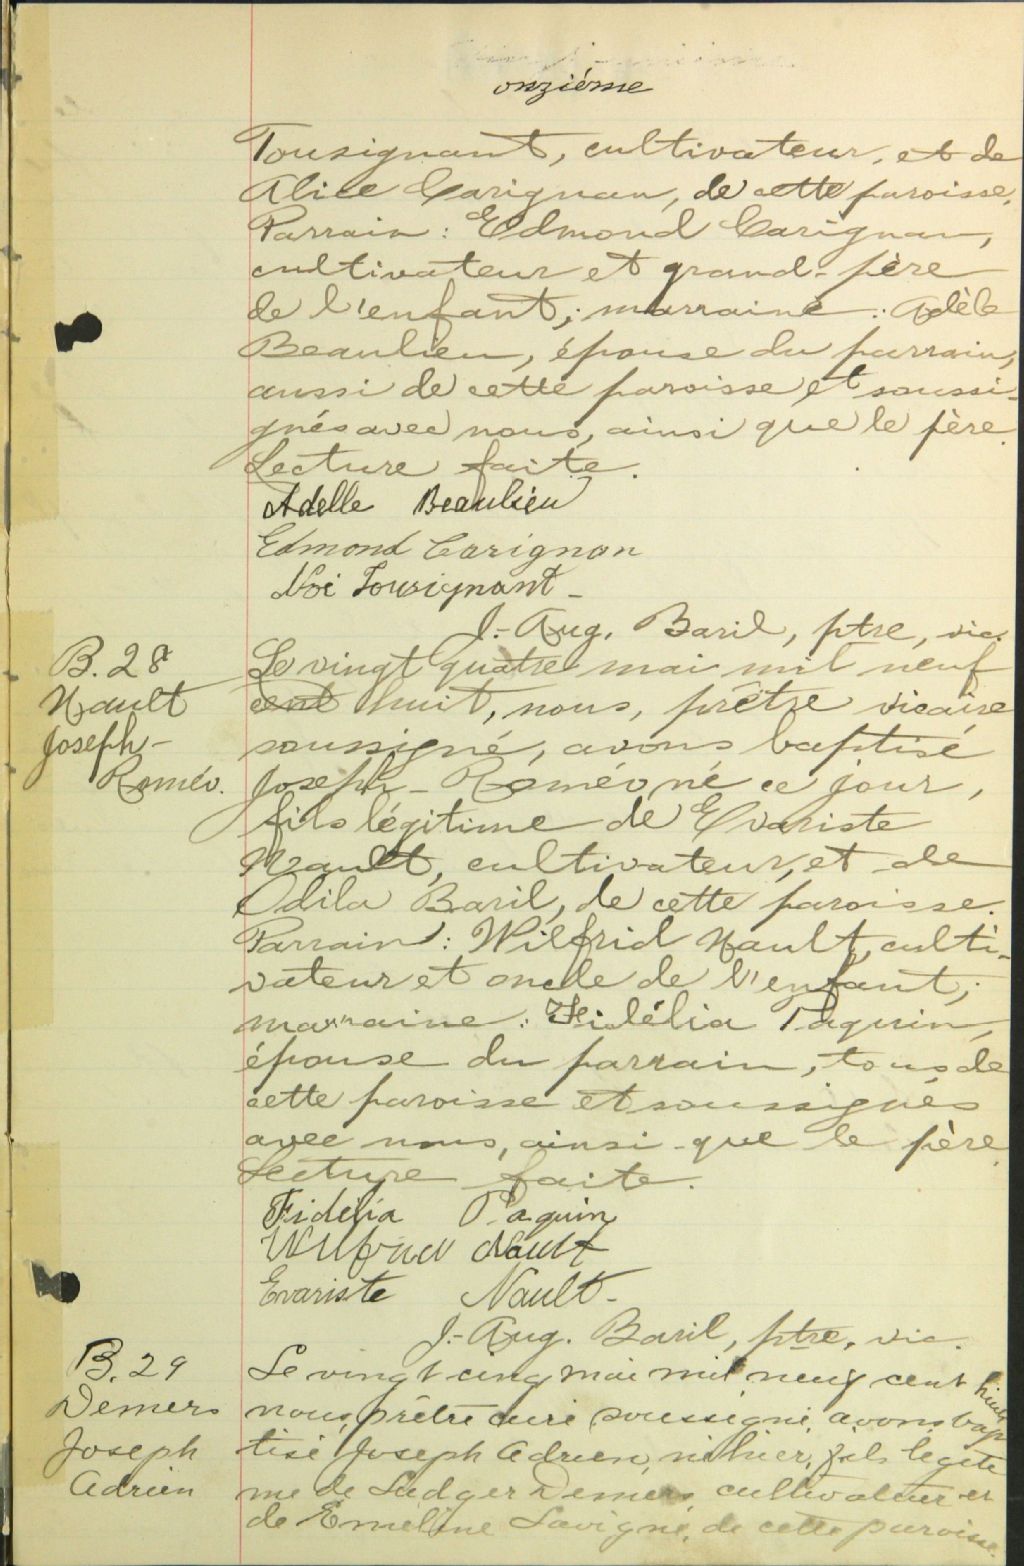 onzième
Tousignant, cultivateur, et de
Alice Carignan, de cette paroisse.
Parrain : Edmond Carignan,
cultivateur et grand-père
de l'enfant; marraine : Adèle
Beaulieu, épouse du parrain,
aussi de cette paroisse et soussi-
gnés avec nous, ainsi que le père.
Lecture faite.
Adelle Beaulieu
Edmond Carignan
Noé Tousignant -
J.-Aug. Baril, ptre, vic.
B. 28
Nault
Joseph-
Roméo.
Le vingt quatre mai mil neuf
cent huit, nous, prêtre vicaire
soussigné, avons baptisé
Joseph-Roméo né ce jour,
fils légitime de Evariste
Nault, cultivateur, et de
Odila Baril, de cette paroisse.
Parrain : Wilfrid Nault, culti-
vateur et oncle de l'enfant;
marraine : Fidélia Paquin,
épouse du parrain, tous de
cette paroisse et soussignés
avec nous, ainsi que le père.
Lecture faite.
Fidélia Paquin
Wilfrid Nault
Evariste Nault -
J.-Aug. Baril, ptre, vic.
B. 29
Demers
Joseph
Adrien
Le vingt cinq mai mil neuf cent huit
nous, prêtre curé soussigné, avons bap
tisé Joseph Adrien, né hier, fils légiti
me de Ludger Demers, cultivateur et
de Emeline Lavigne, de cette paroisse.